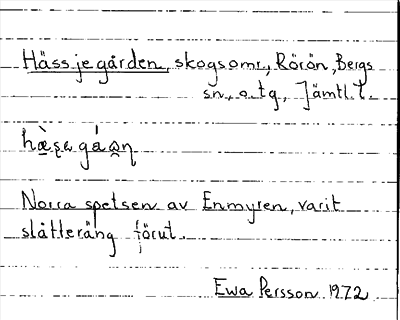 Hässjegården, skogsomr., Rörön, Bergs
sn. o. tg., Jämtl. l.
Norra spetsen av Enmyren, varit
slåtteräng förut.
Ewa Persson 1972